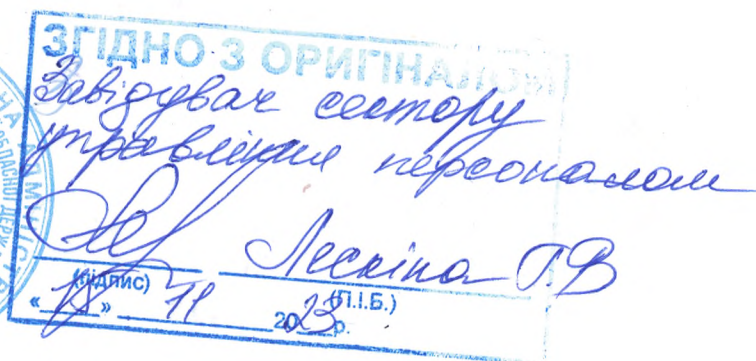 ЗГІДНО З ОРИГІНАЛОМ
Завідувач сектору
управління персоналом
Лескіна Г.В
(підпис) (П.І.Б.)
« » 11 2023р.